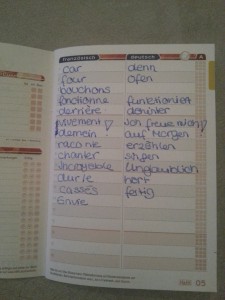 französisch deutsch A
car denn
four ofen
bouchons
fonctionne funktioniert
derrière dahinter
vivement ! Ich freue mich
demain ! auf Morgen
raconte erzählen
chanter singen
incroyable Unglaublich
durle hart
cassés fertig
Envie
05